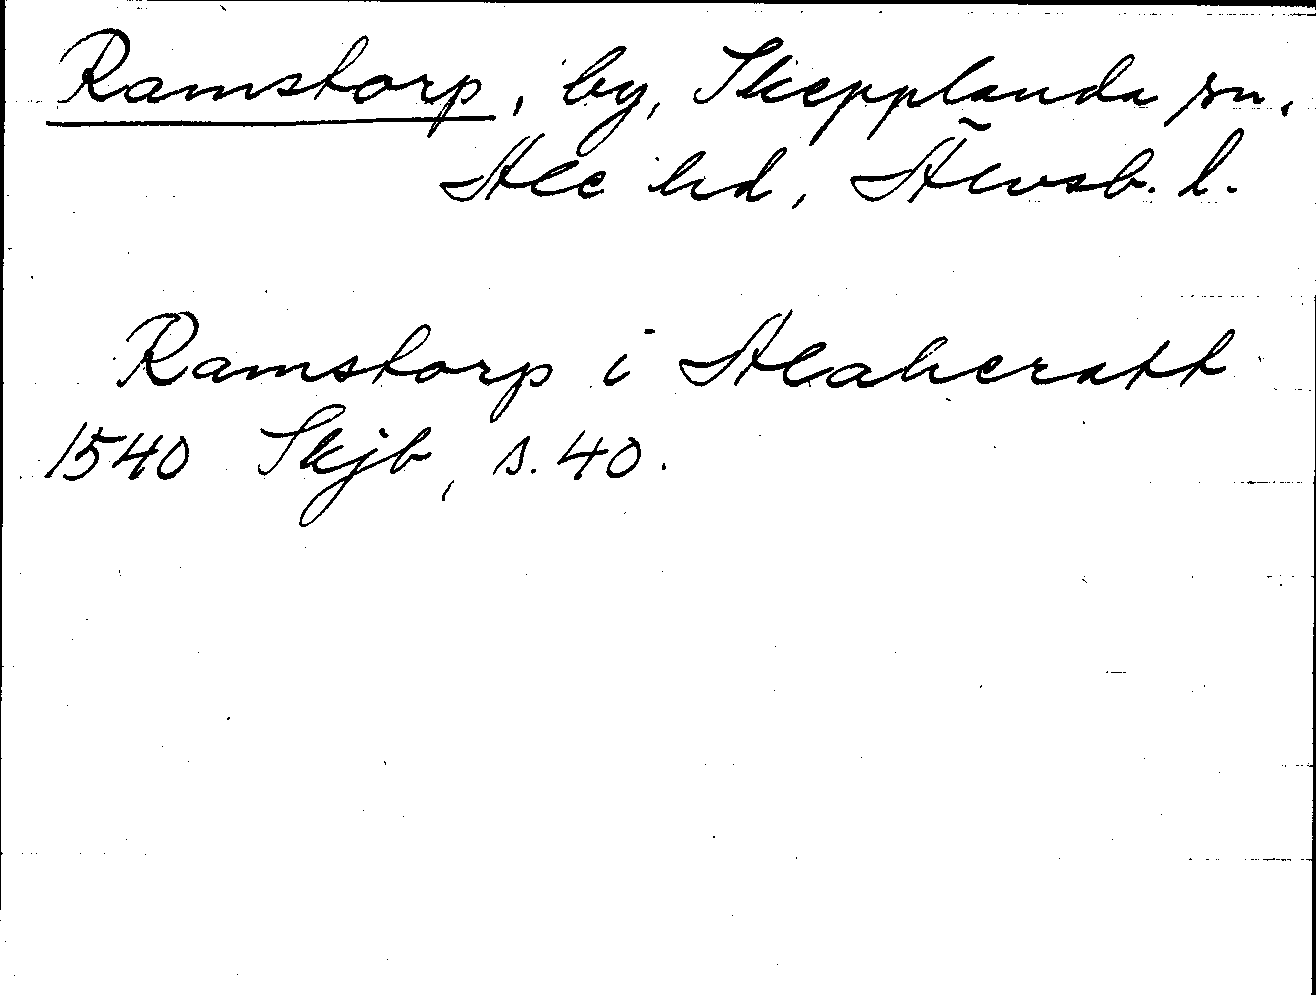 Ramstorp, by, Skepplanda sn.
Ale hd, Älvsb. l.
Ramstorp i Alaheratt
1540 Skjb, s. 40.